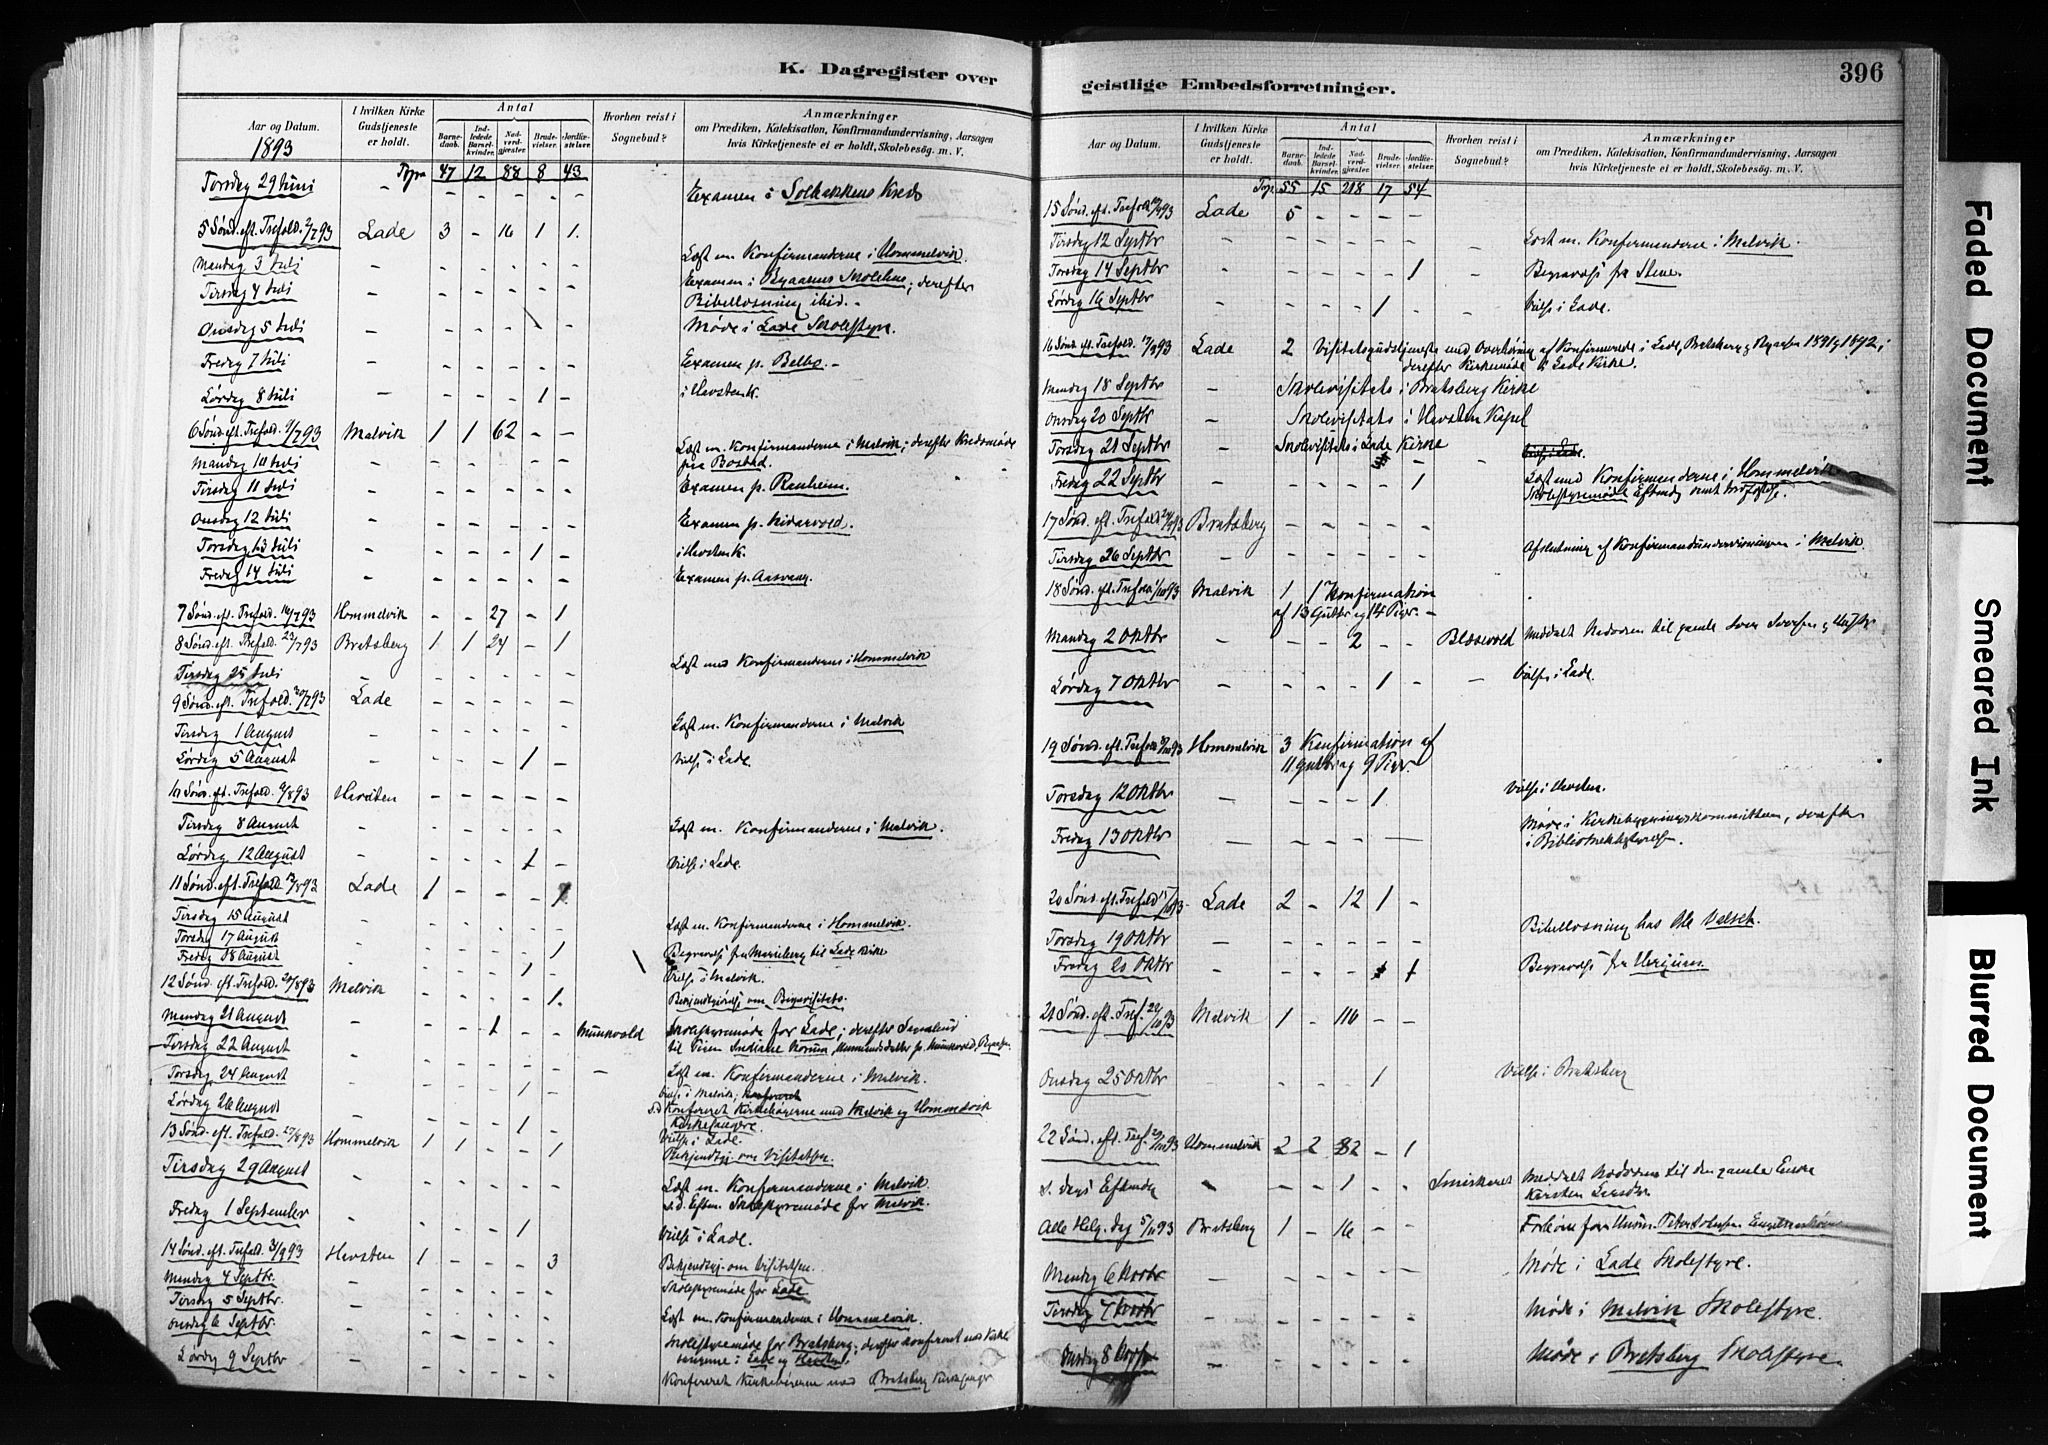 K. Dagregister over
Aar og Datum.
1893
I hvilken Kirke Gudstjeneste er holdt.
Antal
Barnedaab.
Indledede Barselkvinder.
Nadverdgjæster.
Brudevielser.
Jordfæstelser.
Hvorhen reist i Sognebud?
Anmærkninger
om Prædiken, Katekisation, Konfirmandundervisning, Aarsagen
hvis Kirketjeneste ei er holdt, Skolebesøg. m. V.
47 12 88 8 43
Torsdag 29 Juni - - - - - - Examen i Solbakkens Kreds
5 Sønd. eft. Trefold. 2/7 93 Lade 3 - 16 1 1.
Mandag 3 Juli - - - - - - Læst m. Konfirmanderne i Hommelvik.
Tirsdag 4 Juli - - - - - - Examen i Byaasens Skolehus; derefter
Bibellæsning ibid. -
Onsdag 5 Juli - - - - - - Møde i Lade Skolestyre.
Fredag 7 Juli - - - - - - Examen p. Belbo. -
Lørdag 8 Juli - - - - 1 - i Havstenk.
6 Sønd. eft. Trefold. 9/7 93 Malvik 1 1 62 - -
Mandag 10 Juli - - - - - - Læst m. Konfirmanderne i Malvik; derefter Kredsmøde
paa Bostad.
Tirsdag 11 Juli - - - - - - Examen p. Ranheim.
Onsdag 12 Juli - - - - - - Examen p. Nidarvold.
Torsdag 13 Juli - - - - 1 - i Havstenk.
Fredag 14 Juli - - - - - - Examen p. Aasvang.
7 Sønd. eft. Trefold. 16/7 93 Hommelvik - - 27 - 1
8 Sønd. eft. Trefold. 23/7 93 Bratsberg 1 1 24 - 1
Tirsdag 25 Juli - - - - - - Læst med Konfirmanderne i Hommelvik
9 Sønd. eft. Trefold. 30/7 93 Lade - - - - -
Tirsdag 1 August - - - - - - Læst m. Konfirmanderne i Malvik
Lørdag 5 August - - - - 1 - Vielse i Lade.
10 Sønd. eft. Trefold. 6/8 93 Havsten - - - - -
Tirsdag 8 August - - - - - - Læst m. Konfirmanderne i Malvik.
Lørdag 12 August - - - - 1 - Vielse i Lade.
11 Sønd. eft. Trefold. 13/8 93 Lade 1 - - - 1
Tirsdag 15 August - - - - - - Læst m. Konfirmanderne i Hommelvik.
Torsdag 17 August - - - - - 1 Begravelse fra Marieberg til Lade Kirke
Fredag 18 August - - - - 1 - Vielse i Malvik.
12 Sønd. eft. Trefold. 20/8 93 Malvik - - - - 1. Bekjendtgjørelse om Bispevisitats.
Mandag 21 August - - - 1 - - Munkvold Skolestyremøde for Lade; derefter Sognebud
Tirsdag 22 August - - - - - -
Torsdag 24 August - - - - - - Læst m. Konfirmanderne i Malvik.
Lørdag 26 August - - - - 1 - Vielse i Malvik;
s.d Konfereret Kirkebøgerne med Malvik og Hommelvik
Kirkesangere.
Vielse i Lade.
13 Sønd. eft. Trefold. 27/8 93 Hommelvik 1 1 - - 1 Bekjendtgj. om Visitatsen.
Tirsdag 29 August - - - - - - Læst m. Konfirmanderne i Malvik
s. d. Eftm. Skolestyremøde for Malvik.
Fredag 1 September - - - - 1 - Vielse i Lade.
14 Sønd. eft. Trefold. 3/9 93 Havsten 1 - - - 3 Bekjendtgj. om Visitatsen.
Mandag 4 Septbr. - - - - - - Skolestyremøde for Lade
Tirsdag 5 Septbr. - - - - - - Læst m. Konfirmanderne i Hommelvik.
Onsdag 6 Septbr. - - - - - - Skolestyremøde for Bratsberg; derefter konfereret med Kirke-
sangerne i Lade og Havsten.
Lørdag 9 Septbr - - - - - - Konfereret Kirkebøgerne med Bratsberg Kirkesanger
geistlige Embedsforretninger.
396
Aar og Datum.
I hvilken Kirke Gudstjeneste er holdt.
Antal
Barnedaab.
Indledede Barselkvinder.
Nadverdgjæster.
Brudevielser.
Jordfæstelser.
Hvorhen reist i Sognebud?
Anmærkninger
om Prædiken, Katekisation, Konfirmandundervisning, Aarsagen
hvis Kirketjeneste ei er holdt, Skolebesøg. m. V.
55 15 218 17 54
15 Sønd. eft. Trefold. 10/9 93 Lade 5 - - - -
Tirsdag 12 Septbr - - - - - - Læst m. Konfirmanderne i Malvik.
Torsdag 14 Septbr - - - - - 1 - Begravelse fra Stene.
Lørdag 16 Septbr - - - - 1 - - Vielse i Lade.
16 Sønd. eft. Trefold. 17/9 93 Lade 2 Visitatsgudstjeneste med Overhøring af Konfirmerede i Lade, Bratsberg og Byaasen 1891 og 1892;
derefter Kirkemøde i Lade Kirke.
Mandag 18 Septbr - Skolevisitats i Bratsberg Kirke
Onsdag 20 Septbr - Skolevisitats i Havsten Kapel
Torsdag 21 Septbr - Skolevisitats i Lade Kirke
Fredag 22 Septbr - - - - - 1 - Læst med Konfirmanderne i Hommelvik
17 Sønd. eft. Trefold. 24/9 93 Bratsberg - - - - -
Tirsdag 26 Septbr - - - - - - Afslutning af Konfirmandundervisningen i Malvik.
18 Sønd. eft. Trefold. 1/10 93 Malvik 1 1 Konfirmation
af 13 Gutter og 14 Piger. -
Mandag 2 Oktbr - - - 2 - - Blæsevold Meddelt Nadveren til gamle
Lørdag 7 Oktbr - - - - 1 - - Vielse i Lade.
19 Sønd. eft. Trefold. 8/10 93 Hommelvik 3 Konfirmation af
11 Gutter og 9 Piger.
Torsdag 12 Oktbr - - - - 1 Vielse i Havsten.
Fredag 13 Oktbr - - - - - - Møde i Kirkebygningskommitteen, derefter
i Bibliotheksbestyrelsen.
20 Sønd. eft. Trefold. 15/10 93 Lade 2 - 12 1 -
Torsdag 19 Oktbr - - - - - - Bibellæsning hos Ole Valseth.
Fredag 20 Oktbr - - - - 1 Begravelse fra
21 Sønd. eft. Tref. 22/10 93 Malvik 1 - 116 - -
Onsdag 25 Oktbr - - - - 1 - Vielse i Bratsberg
22 Sønd. eft. Tref. 29/10 93 Hommelvik 2 2 82 - 1
s. Dags Eftmdg - - - 1 - - Smiskaret Meddelt Nadveren til den gamle Enke
Alle Helg. dag 5/11 93 Bratsberg 1 - 16 - -
Mandag 6 Novbr - - - - - - Møde i Lade Skolestyre.
Tirsdag 7 Novbr - - - - - - Møde i Malvik Skolestyre.
Onsdag 8 Novbr - - - - - - Møde i Bratsberg Skolestyre.
Faded Document
Smeared Ink
Blurred Document